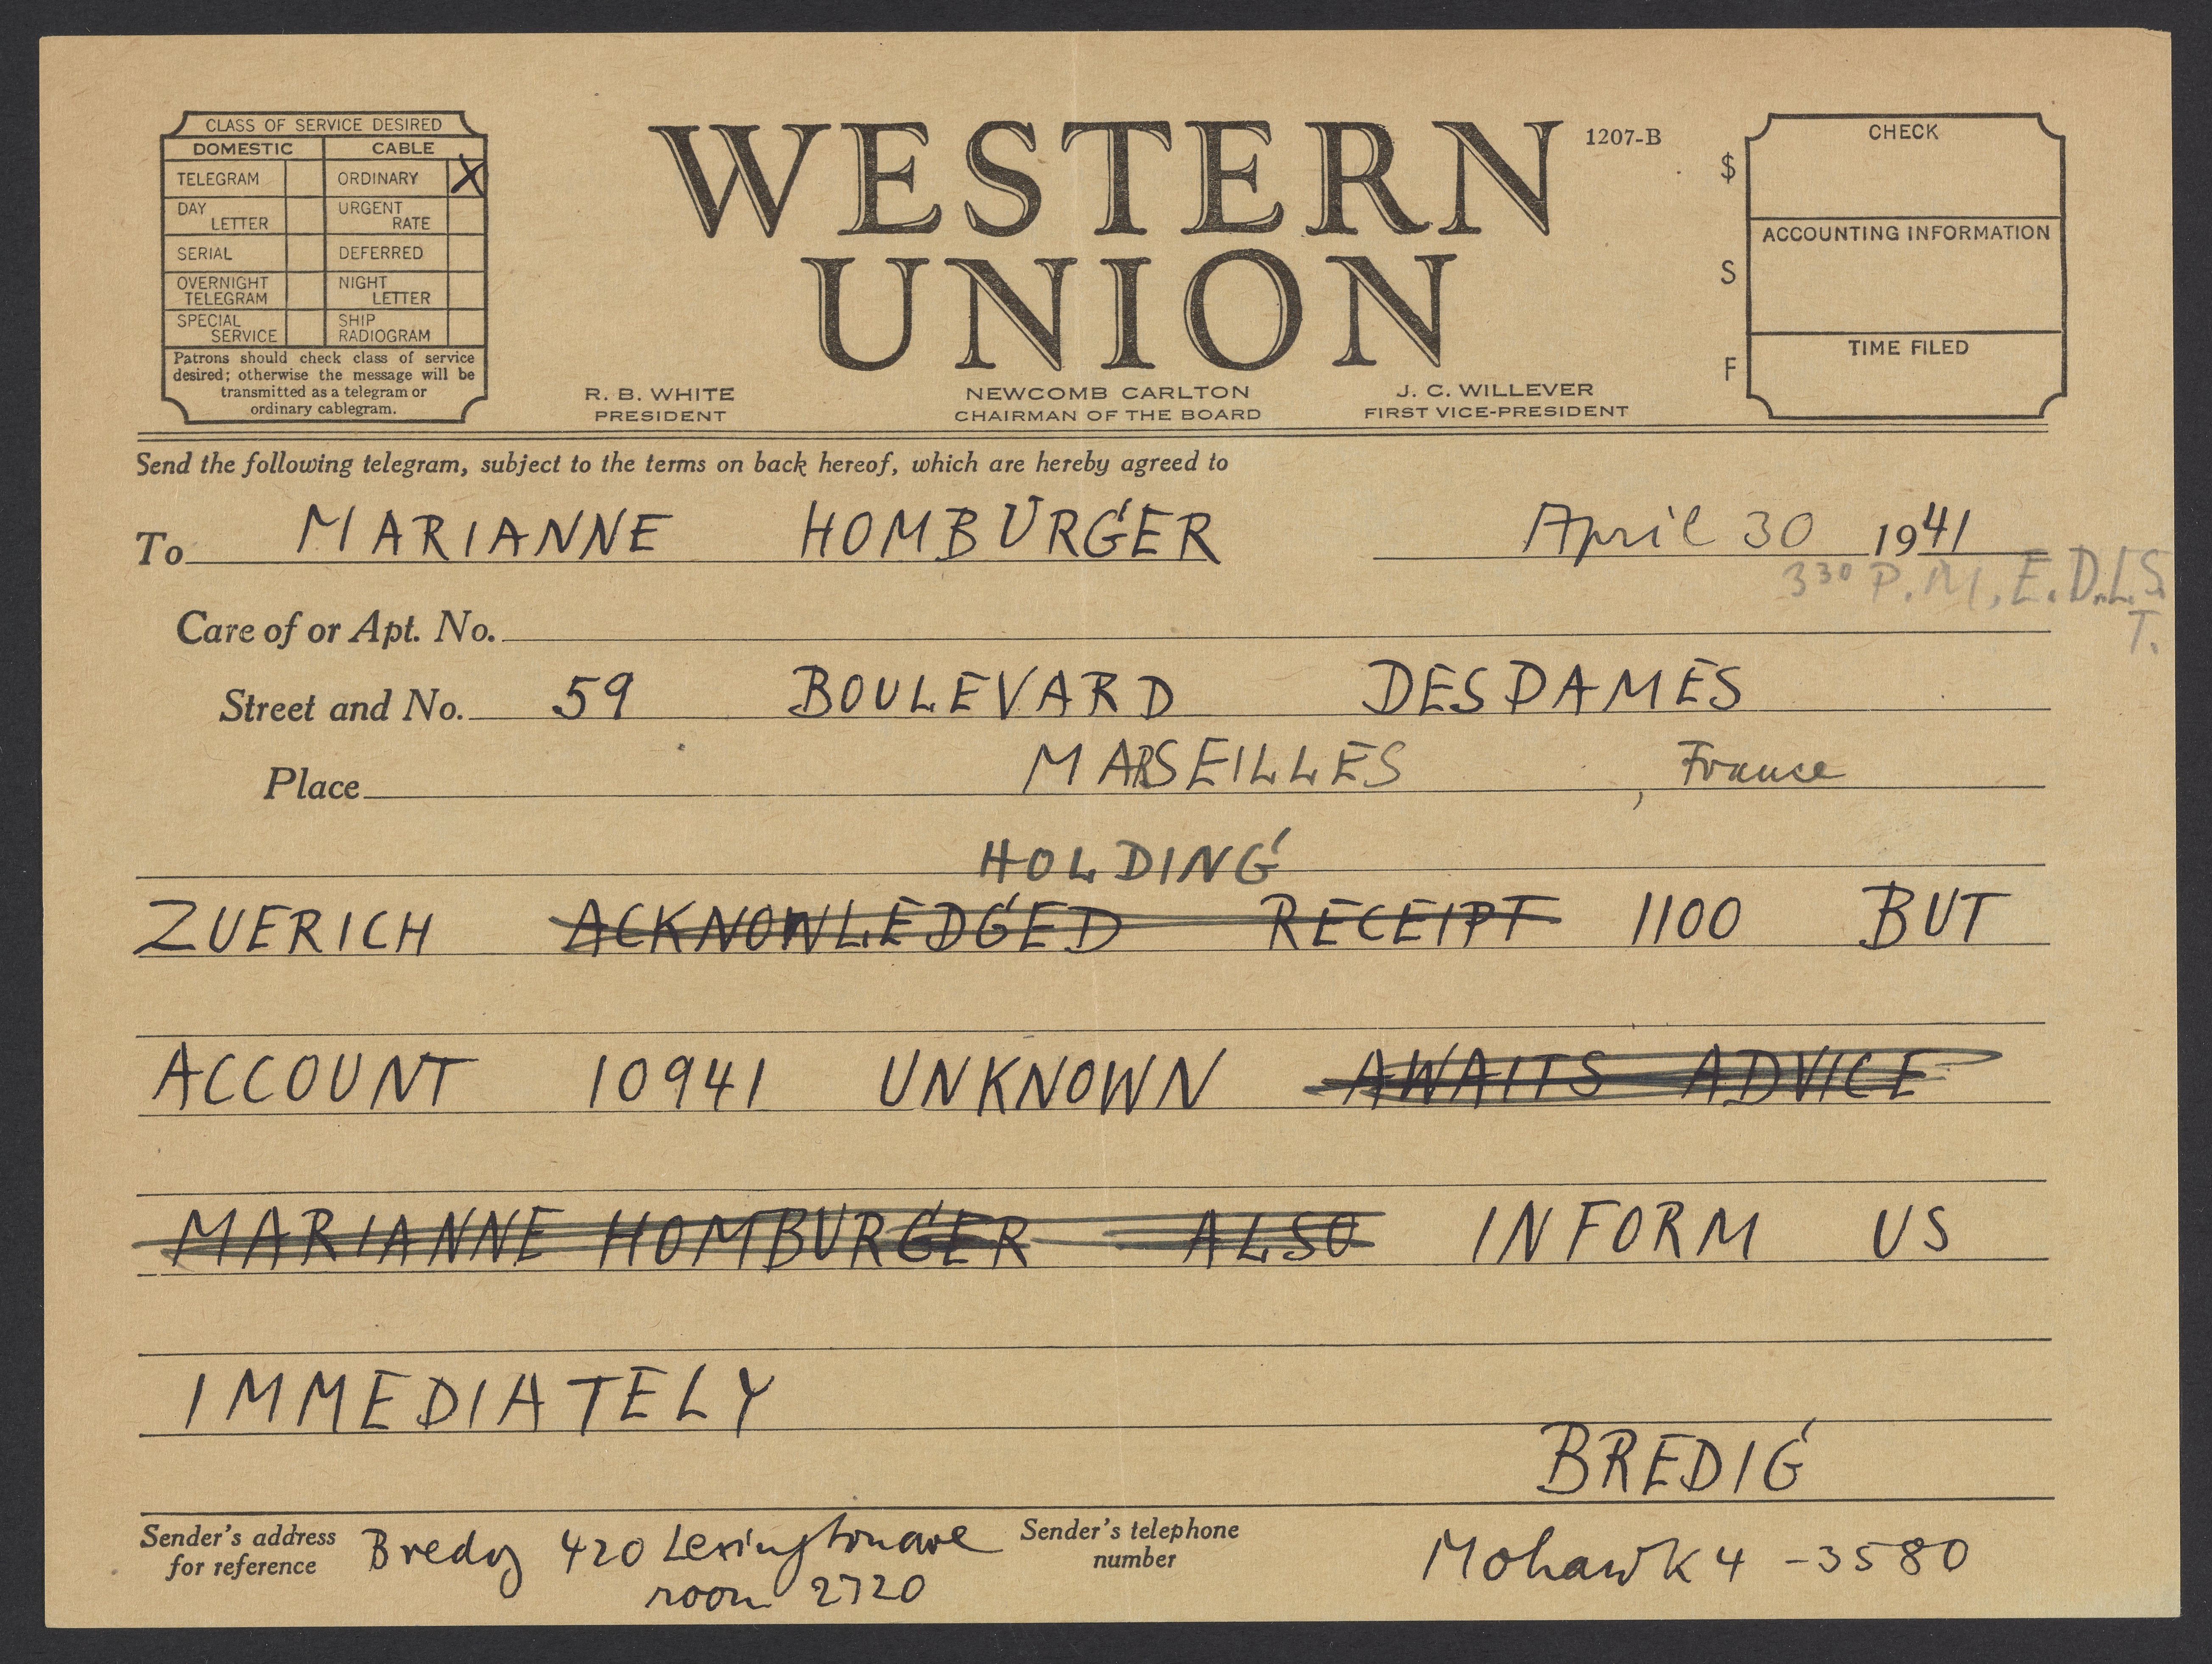 CLASS OF SERVICE DESIRED
DOMESTIC CABLE
TELEGRAM ORDINARY X
DAY LETTER URGENT RATE
SERIAL DEFERRED
OVERNIGHT TELEGRAM NIGHT LETTER
SPECIAL SERVICE SHIP RADIOGRAM
Patrons should check class of service
desired; otherwise the message will be
transmitted as a telegram or
ordinary cablegram.
WESTERN
UNION
1207-B
R. B. WHITE
PRESIDENT
NEWCOMB CARLTON
CHAIRMAN OF THE BOARD
J. C. WILLEVER
FIRST VICE-PRESIDENT
$
S
F
CHECK
ACCOUNTING INFORMATION
TIME FILED
Send the following telegram, subject to the terms on back hereof, which are hereby agreed to
To MARIANNE HOMBURGER April 30 1941
3 30 P.M, E.D.L.S.
T.
Care of or Apt. No.
Street and No. 59 BOULEVARD DESDAMES
Place MARSEILLES, France
HOLDING
ZUERICH ACKNOWLEDGED RECEIPT 1100 BUT
ACCOUNT 10941 UNKNOWN AWAITS ADVICE
MARIANNE HOMBURGER ALSO INFORM US
IMMEDIATELY
BREDIG
Sender's address
for reference
Bredig 420 Lexington ave
room 2720
Sender's telephone
number
Mohawk 4 - 3580